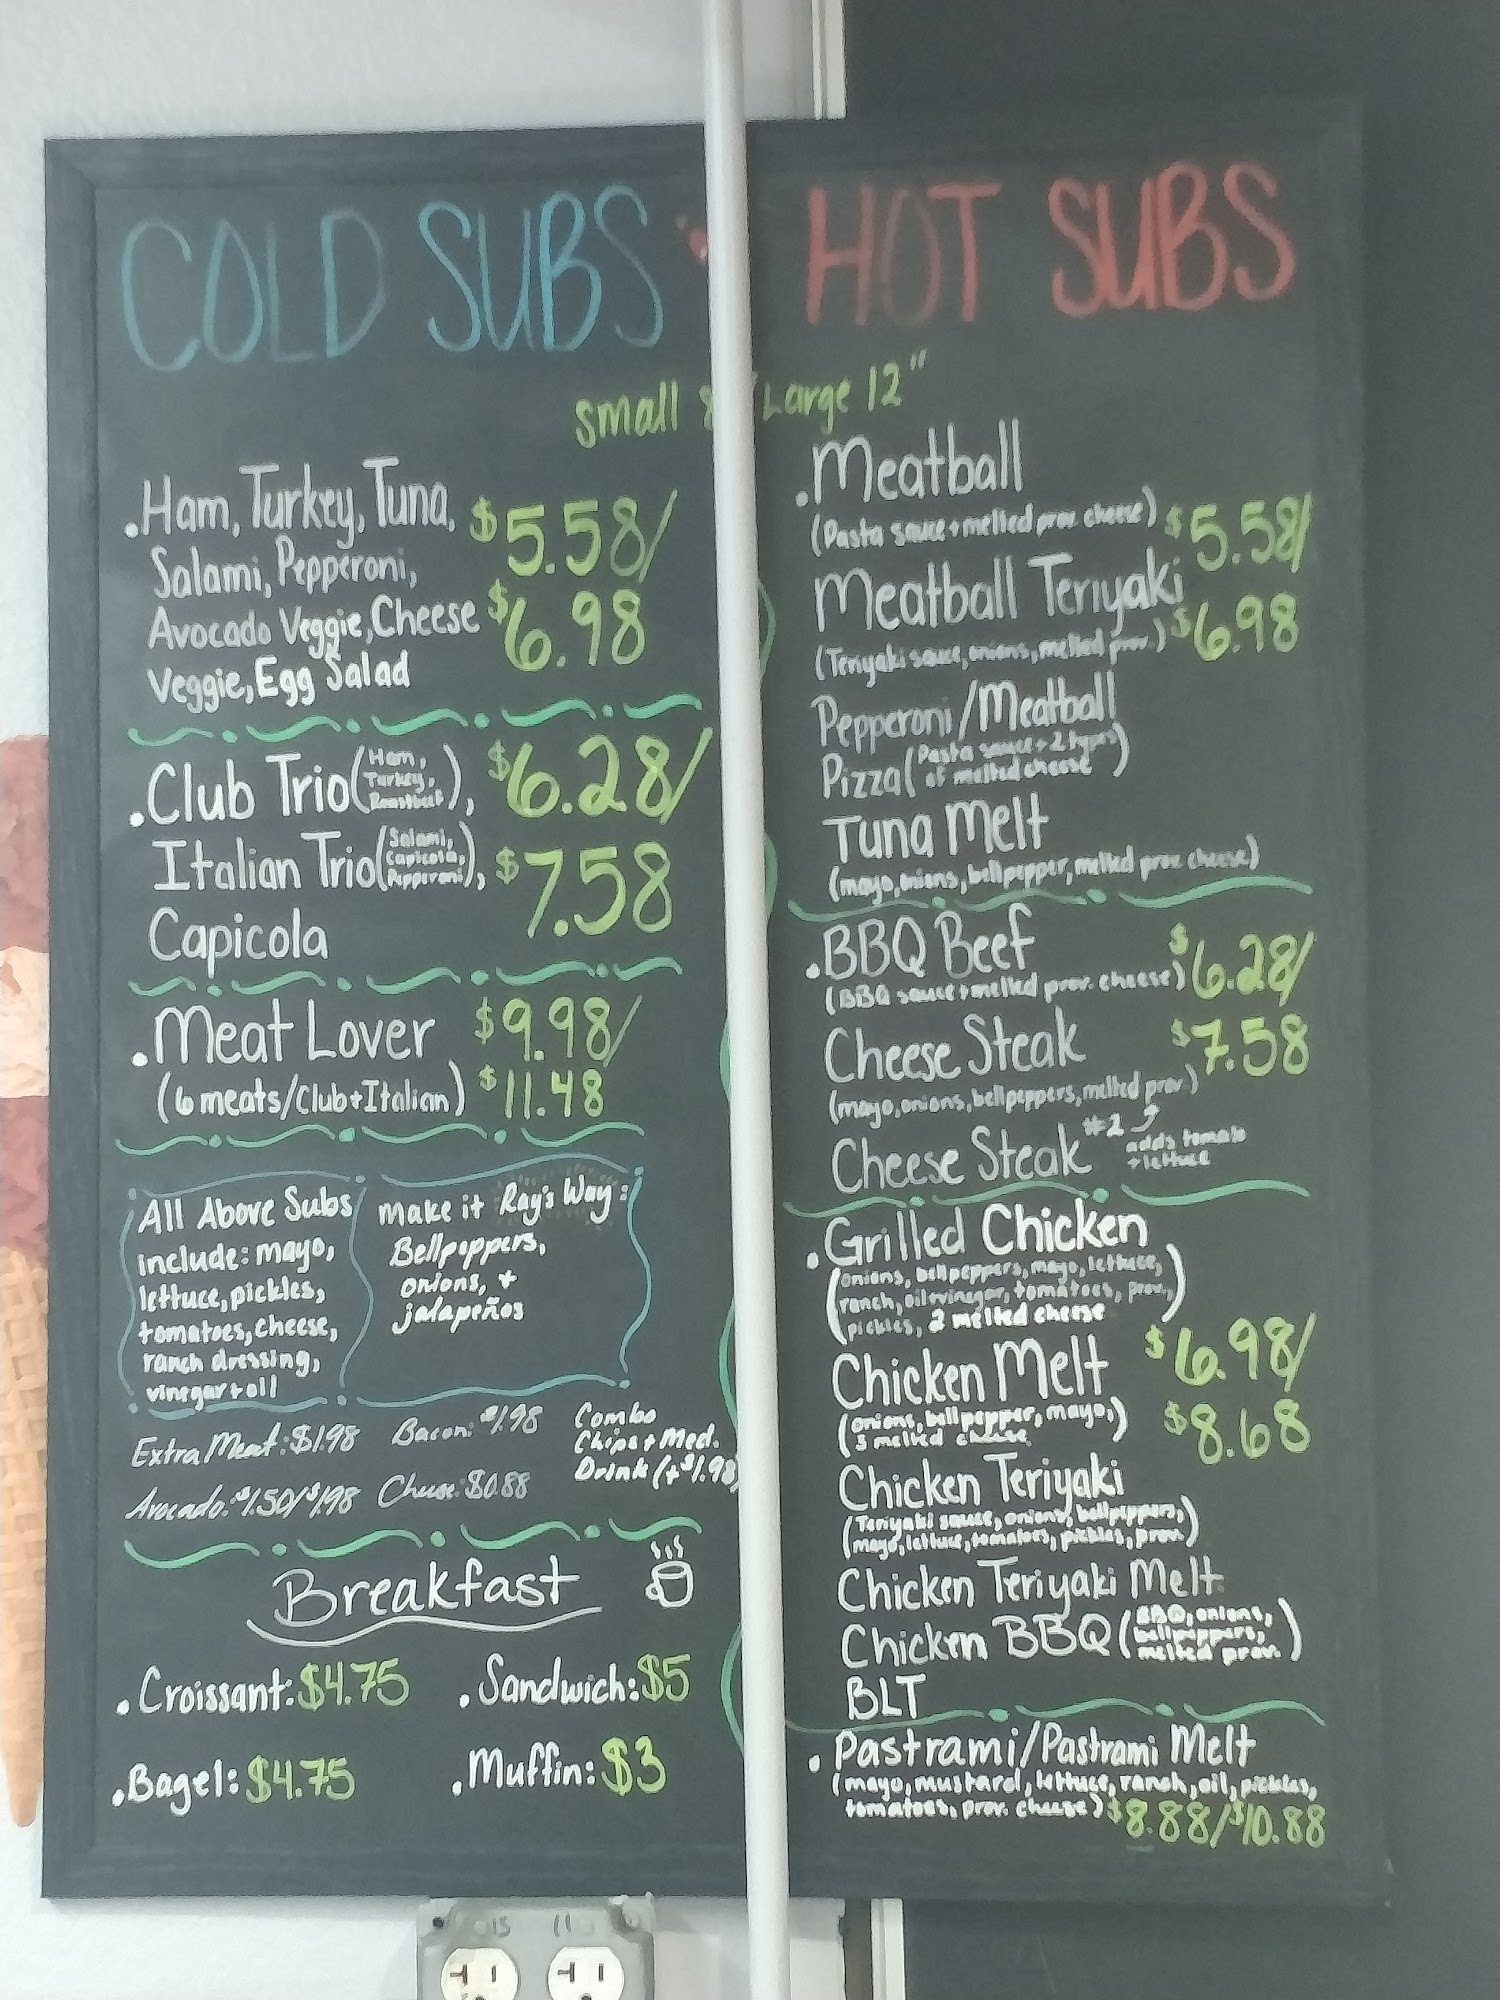 COLD SUBS
.Ham, Turkey, Tuna,
Salami, Pepperoni,
Avocado Veggie, Cheese
Veggie, Egg Salad
$5.58/
$6.98
.Club Trio (Ham, Turkey, Roastbeef),
Italian Trio (Salami, Capicola, Pepperoni),
Capicola
$6.28/
$7.58
.Meat Lover $9.98/
(6 meats/Club+Italian) $11.48
All Above Subs
include: mayo,
lettuce, pickles,
tomatoes, cheese,
ranch dressing,
vinegar + oil
Make it Ray's Way:
Bellpeppers,
onions, +
jalapeños
Extra Meat: $1.98 Bacon: $1.98
Avocado: $1.50/$1.98 Cheese: $0.88
Combo
Chips + Med.
Drink (+$1.98)
Breakfast
.Croissant: $4.75 .Sandwich: $5
.Bagel: $4.75 .Muffin: $3
HOT SUBS
Small Large 12"
.Meatball
(Pasta sauce + melted prov. cheese) $5.58/
Meatball Teriyaki
(Teriyaki sauce, onions, melted prov.) $6.98
Pepperoni/Meatball
Pizza (Pasta sauce + 2 types
of melted cheese)
Tuna Melt
(mayo, onions, bellpepper, melted prov. cheese)
.BBQ Beef
(BBQ sauce + melled prov. cheese) $6.28/
Cheese Steak $7.58
(mayo, onions, bellpeppers, melted prov.)
Cheese Steak #2 adds tomato
+ lettuce
.Grilled Chicken
(onions, bellpeppers, mayo, lettuce,
ranch, oil+vinegar, tomatoes, prov.,
pickles, 2 melted cheese)
Chicken Melt $6.98/
(onions, bellpepper, mayo,
3 melted cheese) $8.68
Chicken Teriyaki
(Teriyaki sauce, onions, bellpeppers,
mayo, lettuce, tomatoes, pickles, prov.)
Chicken Teriyaki Melt
Chicken BBQ (BBQ, onions,
bellpeppers,
melted prov.)
BLT
.Pastrami/Pastrami Melt
(mayo, mustard, lettuce, ranch, oil, pickles,
tomatoes, prov. cheese) $8.88/$10.88